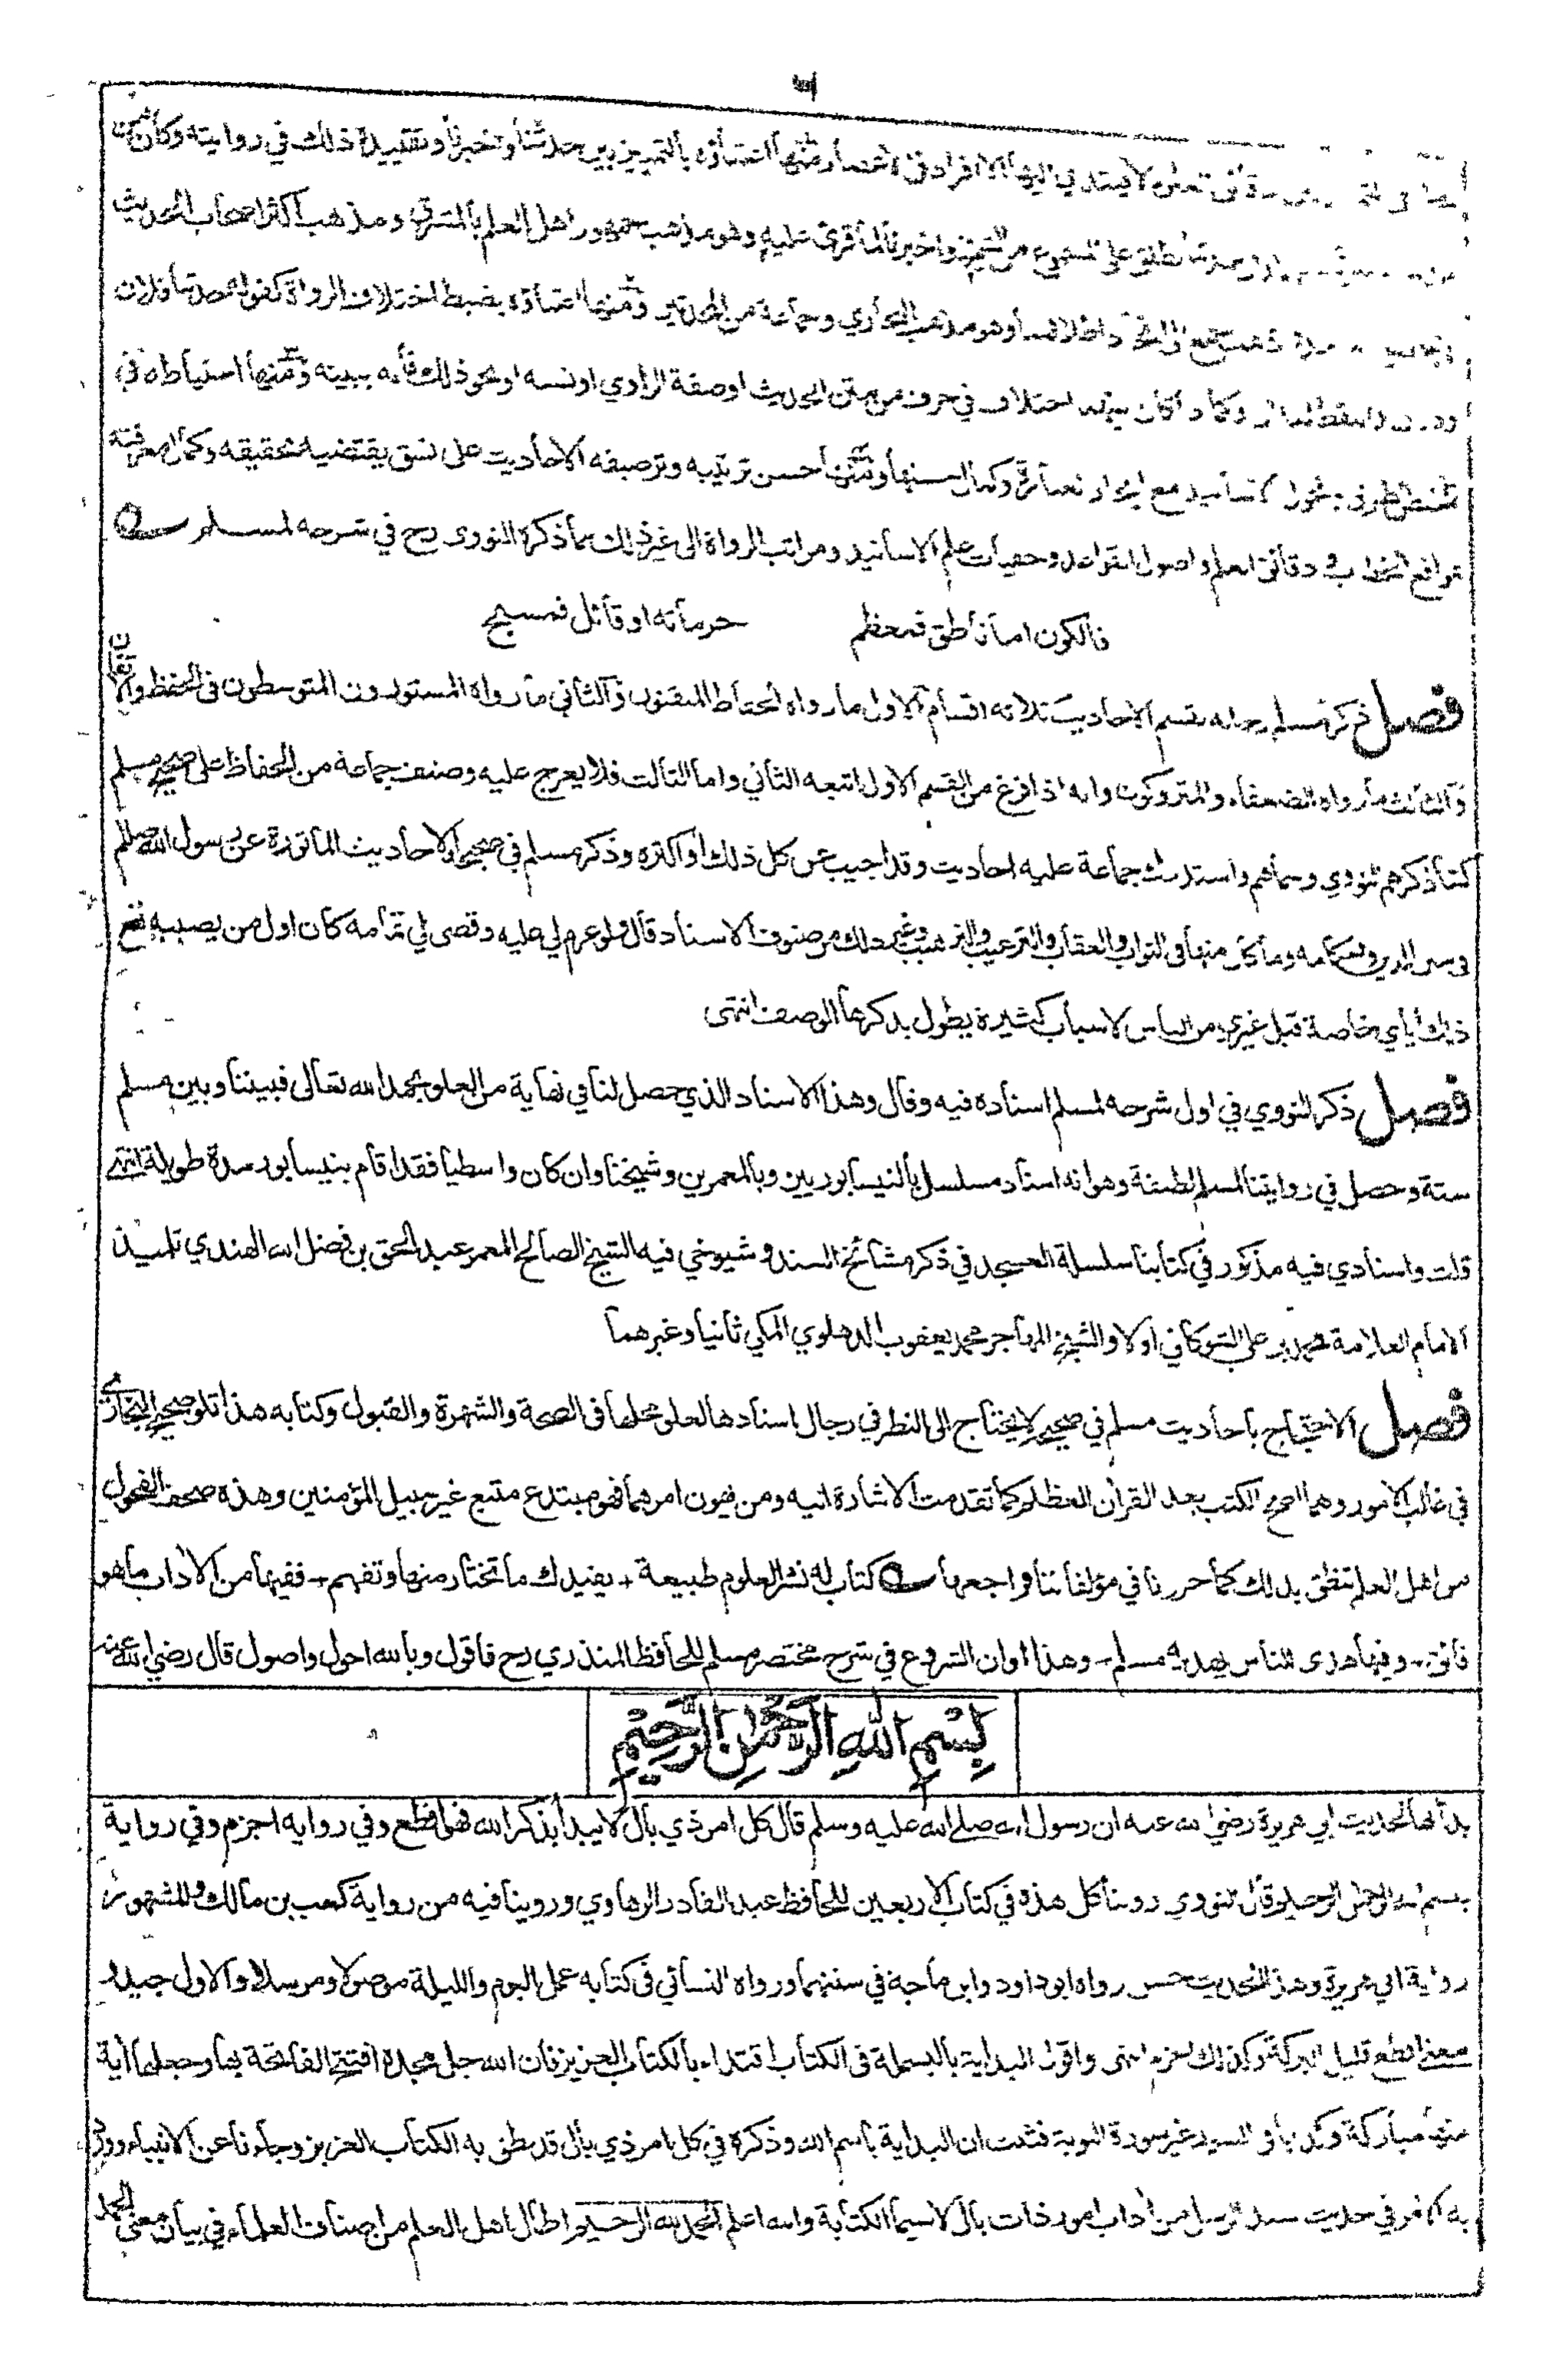 دقائق تعلى لا يهتدي اليها الا افراد في الاعصار ومنها اعتناؤه بالتمييز بين حدثنا واخبرنا وتقييده ذلك في روايته وكان من
واخبرنا لما قرئ عليه وهو مذهب جمهور اهل العلم بالمشرق ومذهب اكثر اصحاب الحديث
وهو مذهب البخاري وجماعة من المحدثين ومنها اعتناؤه بضبط اختلاف الرواة كقوله حدثنا فلان
وفلان واللفظ لفلان وكما اذا كان بينهما اختلاف في حرف من متن الحديث او صفة الراوي او نسبه او نحو ذلك فانه يبينه ومنها احتياطه في
تلخيص الطرق وتحول الاسانيد مع ايجاز العبارة وكمال حسنها ومنها حسن ترتيبه وترصيفه الاحاديث على نسق يقتضيه تحقيقه وكمال معرفته
بمواقع الخطاب في دقائق العلم واصول القواعد وخفيات علم الاسانيد ومراتب الرواة الى غير ذلك مما ذكره النووي رح في شرحه لمسلم
فالكون اما ناطق فمعظم حرماته او قائل فمسبح
فصل ذكر مسلم رحمه الله يقسم الاحاديث ثلاثة اقسام الاول ما رواه الحفاظ المتقنون والثاني ما رواه المستورون المتوسطون في الحفظ والاتقان
والثالث ما رواه الضعفاء والمتروكون وانه اذا فرغ من القسم الاول اتبعه الثاني واما الثالث فلا يعرج عليه وصنف جماعة من الحفاظ على صحيح مسلم
كتبا ذكرهم النووي وسماهم واستدرك جماعة عليه احاديث وقد اجيب عن كل ذلك او اكثره وذكر مسلم في صحيحه الاحاديث الماثورة عن رسول الله صلعم
في سنن الدين واحكامه وما كان منها في الثواب والعقاب والترغيب والترهيب وغير ذلك من صنوف الاسناد قال ولو عزم لي عليه وقضى لي تمامه كان اول من يصيبه نفع
ذلك اياي خاصة قبل غيري من الناس لاسباب كثيرة يطول بذكرها الوصف انتهى
فصل ذكر النووي في اول شرحه لمسلم اسناده فيه وقال وهذا الاسناد الذي حصل لنا في نهاية من العلو بحمد الله تعالى فبيننا وبين مسلم
ستة وحصل في روايتنا لمسلم لطيفة وهو انه اسناد مسلسل بالنيسابوريين وبالمعمرين وشيخنا وان كان واسطيا فقد اقام بنيسابور مدة طويلة انتهى
قلت واسنادي فيه مذكور في كتابنا سلسلة العسجد في ذكر مشائخ السند وشيوخي فيه الشيخ الصالح المعمر عبد الحق بن فضل الله الهندي تلميذ
الامام العلامة محمد بن علي الشوكاني اولا والشيخ المهاجر محمد يعقوب الدهلوي المكي ثانيا وغيرهما
فصل الاحتجاج باحاديث مسلم في صحيحه لا يحتاج الى النظر في رجال اسنادها لعلو محلها في الصحة والشهرة والقبول وكتابه هذا تلو صحيح البخاري
في غالب الامور وهما اصح الكتب بعد القران العظيم كما تقدمت الاشارة اليه ومن يهون امرهما فهو مبتدع متبع غير سبيل المؤمنين وهذه صحف الفحول
من اهل العلم تنطق بذلك كما حررنا في مؤلفاتنا فراجعها كتاب له نشر العلوم طبيعة - يفيدك ما تختار منها وتفهم - ففيها من الآداب ما هو
فائق - وفيها هدى للناس يهديه مسلم - وهذا اوان الشروع في شرح مختصر مسلم للحافظ المنذري رح فاقول وبالله احول واصول قال رضي الله عنه
بِسْمِ اللهِ الرَّحْمٰنِ الرَّحِيْمِ
بدأ بها لحديث ابي هريرة رضي الله عنه ان رسول الله صلى الله عليه وسلم قال كل امر ذي بال لا يبدأ بذكر الله فهو اقطع وفي رواية اجزم وفي رواية
بسم الله الرحمن الرحيم قال النووي روينا كل هذه في كتاب الاربعين للحافظ عبد القادر الرهاوي وروينا فيه من رواية كعب بن مالك والمشهور
رواية ابي هريرة وهذا الحديث حسن رواه ابو داود وابن ماجة في سننهما ورواه النسائي في كتابه عمل اليوم والليلة موصولا ومرسلا والاول جيد
معنى اقطع قليل البركة وكذلك اجزم انتهى واقول البداية بالبسملة في الكتاب اقتداء بالكتاب العزيز فان الله جل مجده افتتح الفاتحة بها وجعلها آية
منها مباركة وكذا باقي السور غير سورة التوبة فثبت ان البداية باسم الله وذكره في كل امر ذي بال قد نطق به الكتاب العزيز وجاءنا عن الانبياء وورد
به الامر في حديث سيد الرسل من آداب امور ذات بال لاسيما الكتابة والله اعلم الحمد لله الرحيم اطال اهل العلم من اصناف العلماء في بيان معنى الحمد